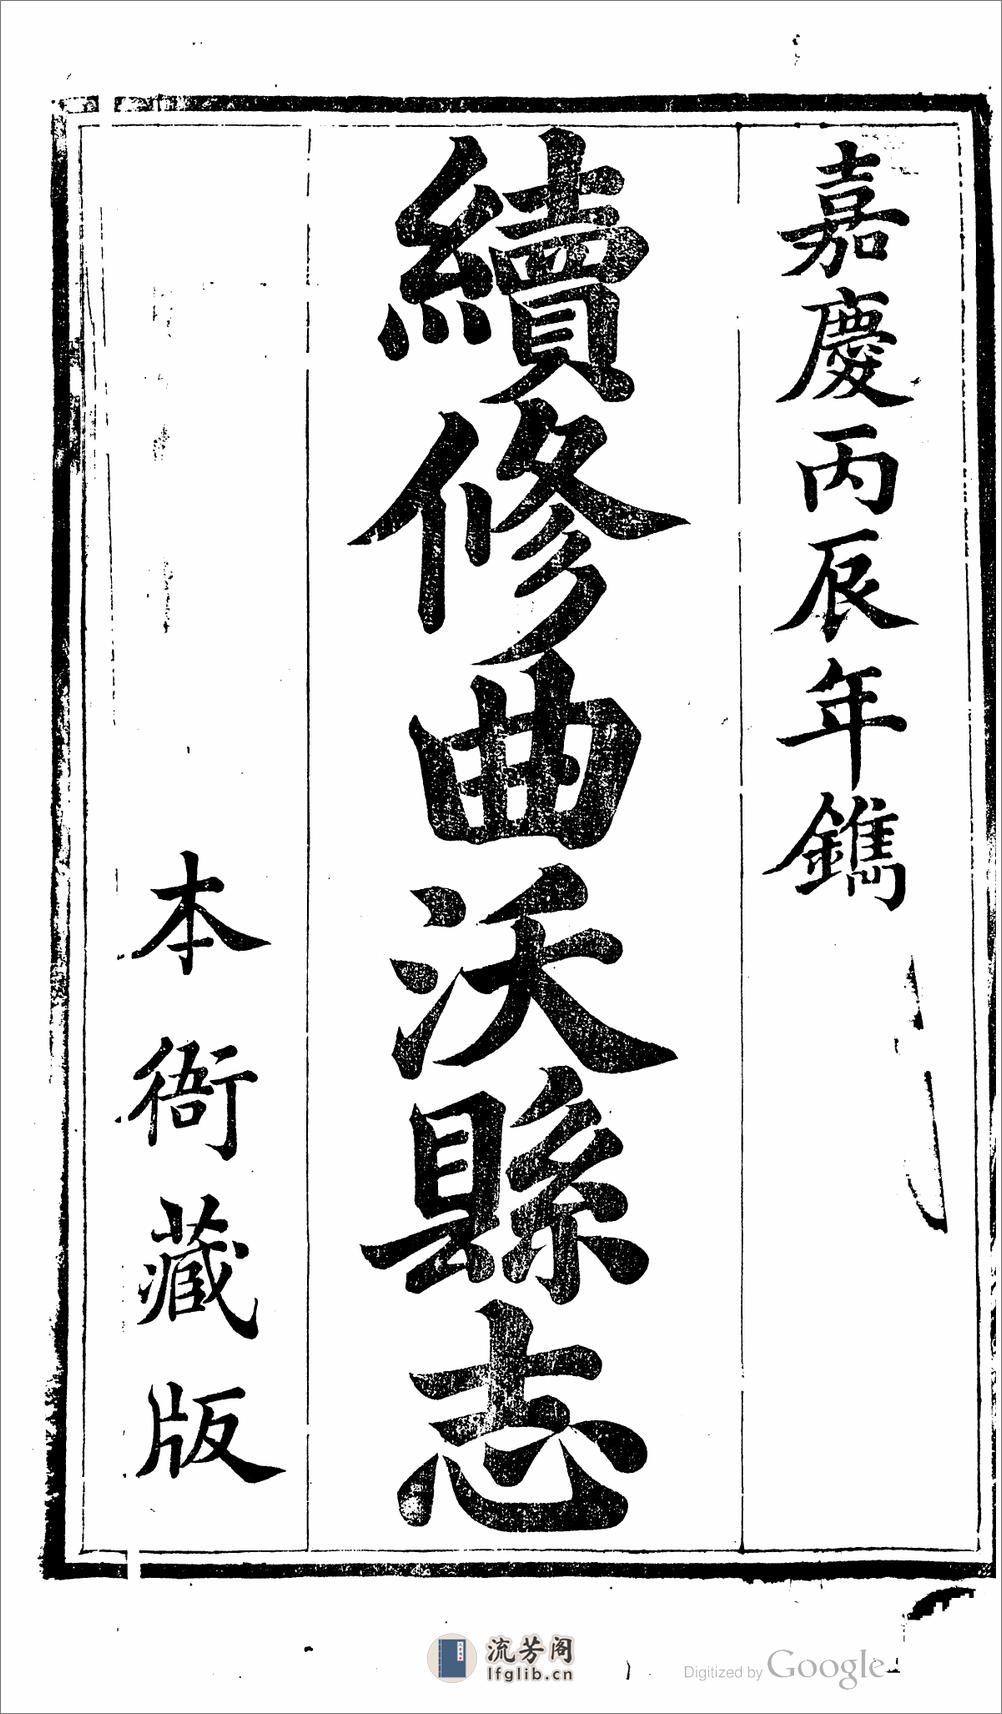 嘉慶丙辰年鐫
續修曲沃縣志
本衙藏版
流芳阁
lfglib.cn
Digitized by Google